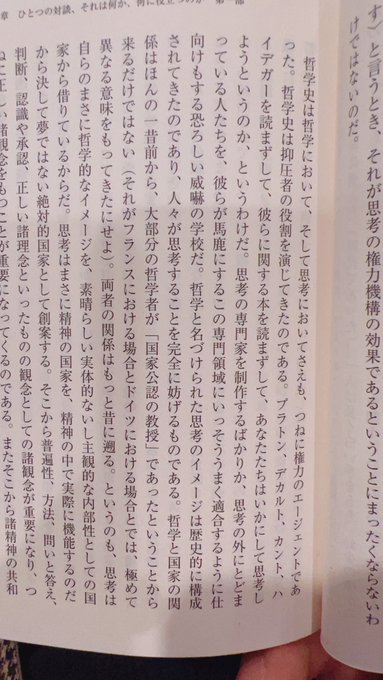 章 ひとつの対談、それは何か、何に役立つのか 第一部
す）と言うとき、それが思考の権力機構の効果であるということにまったくならないわ
けではないのだ。
哲学史は哲学において、そして思考においてさえも、つねに権力のエージェントであ
った。哲学史は抑圧者の役割を演じてきたのである。プラトン、デカルト、カント、ハ
イデガーを読まずして、彼らに関する本を読まずして、あなたたちはいかにして思考し
ようというのか、というわけだ。思考の専門家を制作するばかりか、思考の外にとどま
っている人たちを、彼らが馬鹿にするこの専門領域にいっそううまく適合するように仕
向けもする恐ろしい威嚇の学校だ。哲学と名づけられた思考のイメージは歴史的に構成
されてきたのであり、人々が思考することを完全に妨げるものである。哲学と国家の関
係はほんの一昔前から、大部分の哲学者が「国家公認の教授」であったということから
来るだけではない（それがフランスにおける場合とドイツにおける場合とでは、極めて
異なる意味をもってきたにせよ）。両者の関係はもっと昔に遡る。というのも、思考は
自らのまさに哲学的なイメージを、素晴らしい実体的ないし主観的な内部性としての国
家から借りているからだ。思考はまさに精神の国家を、精神の中で実際に機能するのだ
から決して夢ではない絶対的国家として創案する。そこから普遍性、方法、問いと答え、
判断、認識や承認、正しい諸理念といったものの観念としての諸観念が重要になり、つ
ねに正しい諸観念をもつことが重要になってくるのである。またそこから諸精神の共和